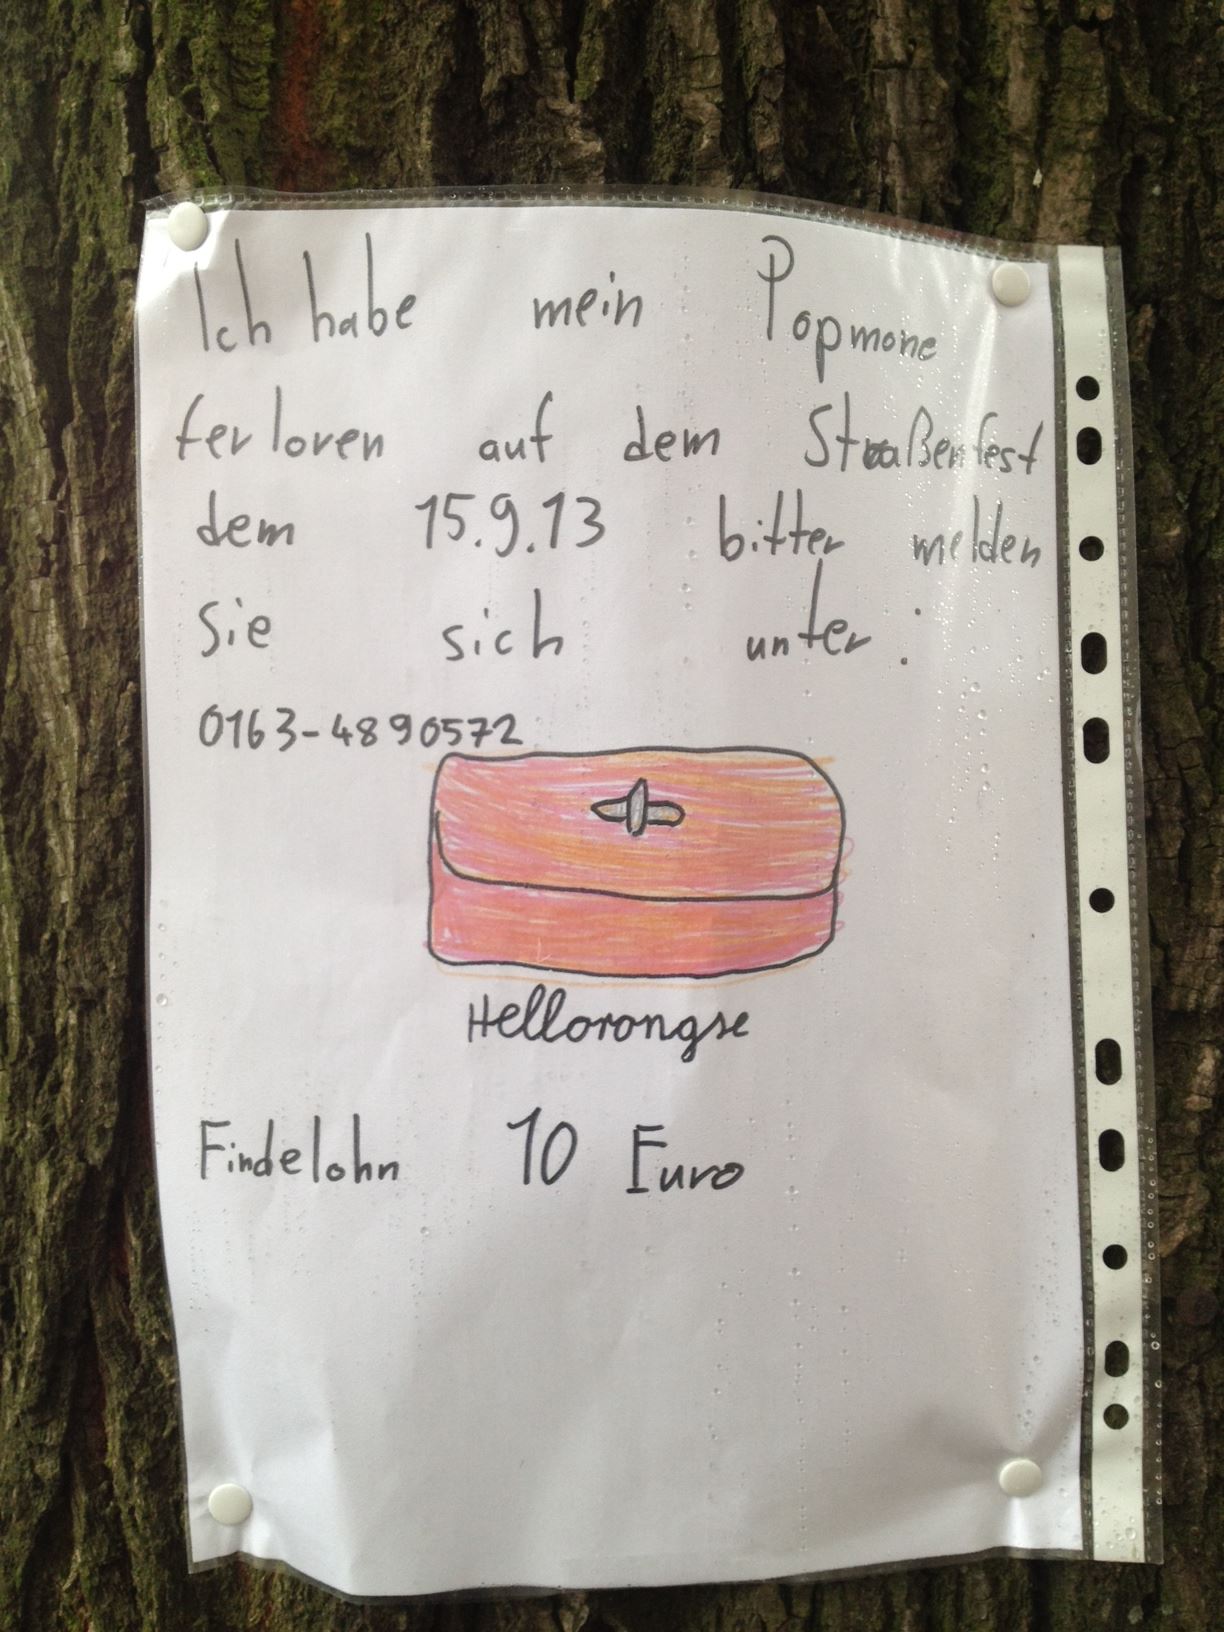 Ich habe mein Popmone
ferloren auf dem Straßenfest
dem 15.9.13 bitter melden
Sie sich unter:
0163-4890572
Hellorongse
Findelohn 10 Euro